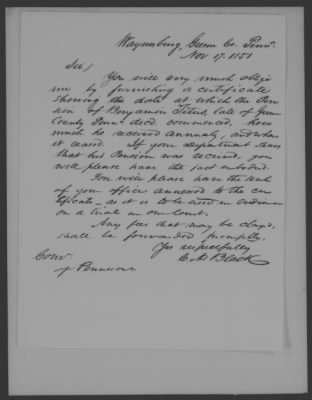 Waynesburg, Green Co. Penna.
Nov 17. 1851
Sir,
You will very much oblige
me by furnishing a certificate
showing the date at which the Pen
sion of Benjamin Titus, late of Green
County Penna decd. commenced, how
much he received annually, and when
it ceased. If your department shows
that his Pension was received, you
will please have the fact embodied.
You will please have the seal
of your office annexed to the cer
tificate, as it is to be used in evidence
on a trial in our Court.
Any fees that may be chargd,
shall be forwarded promptly.
Yrs respectfully
C. A. Black
Comr.
of Pensions